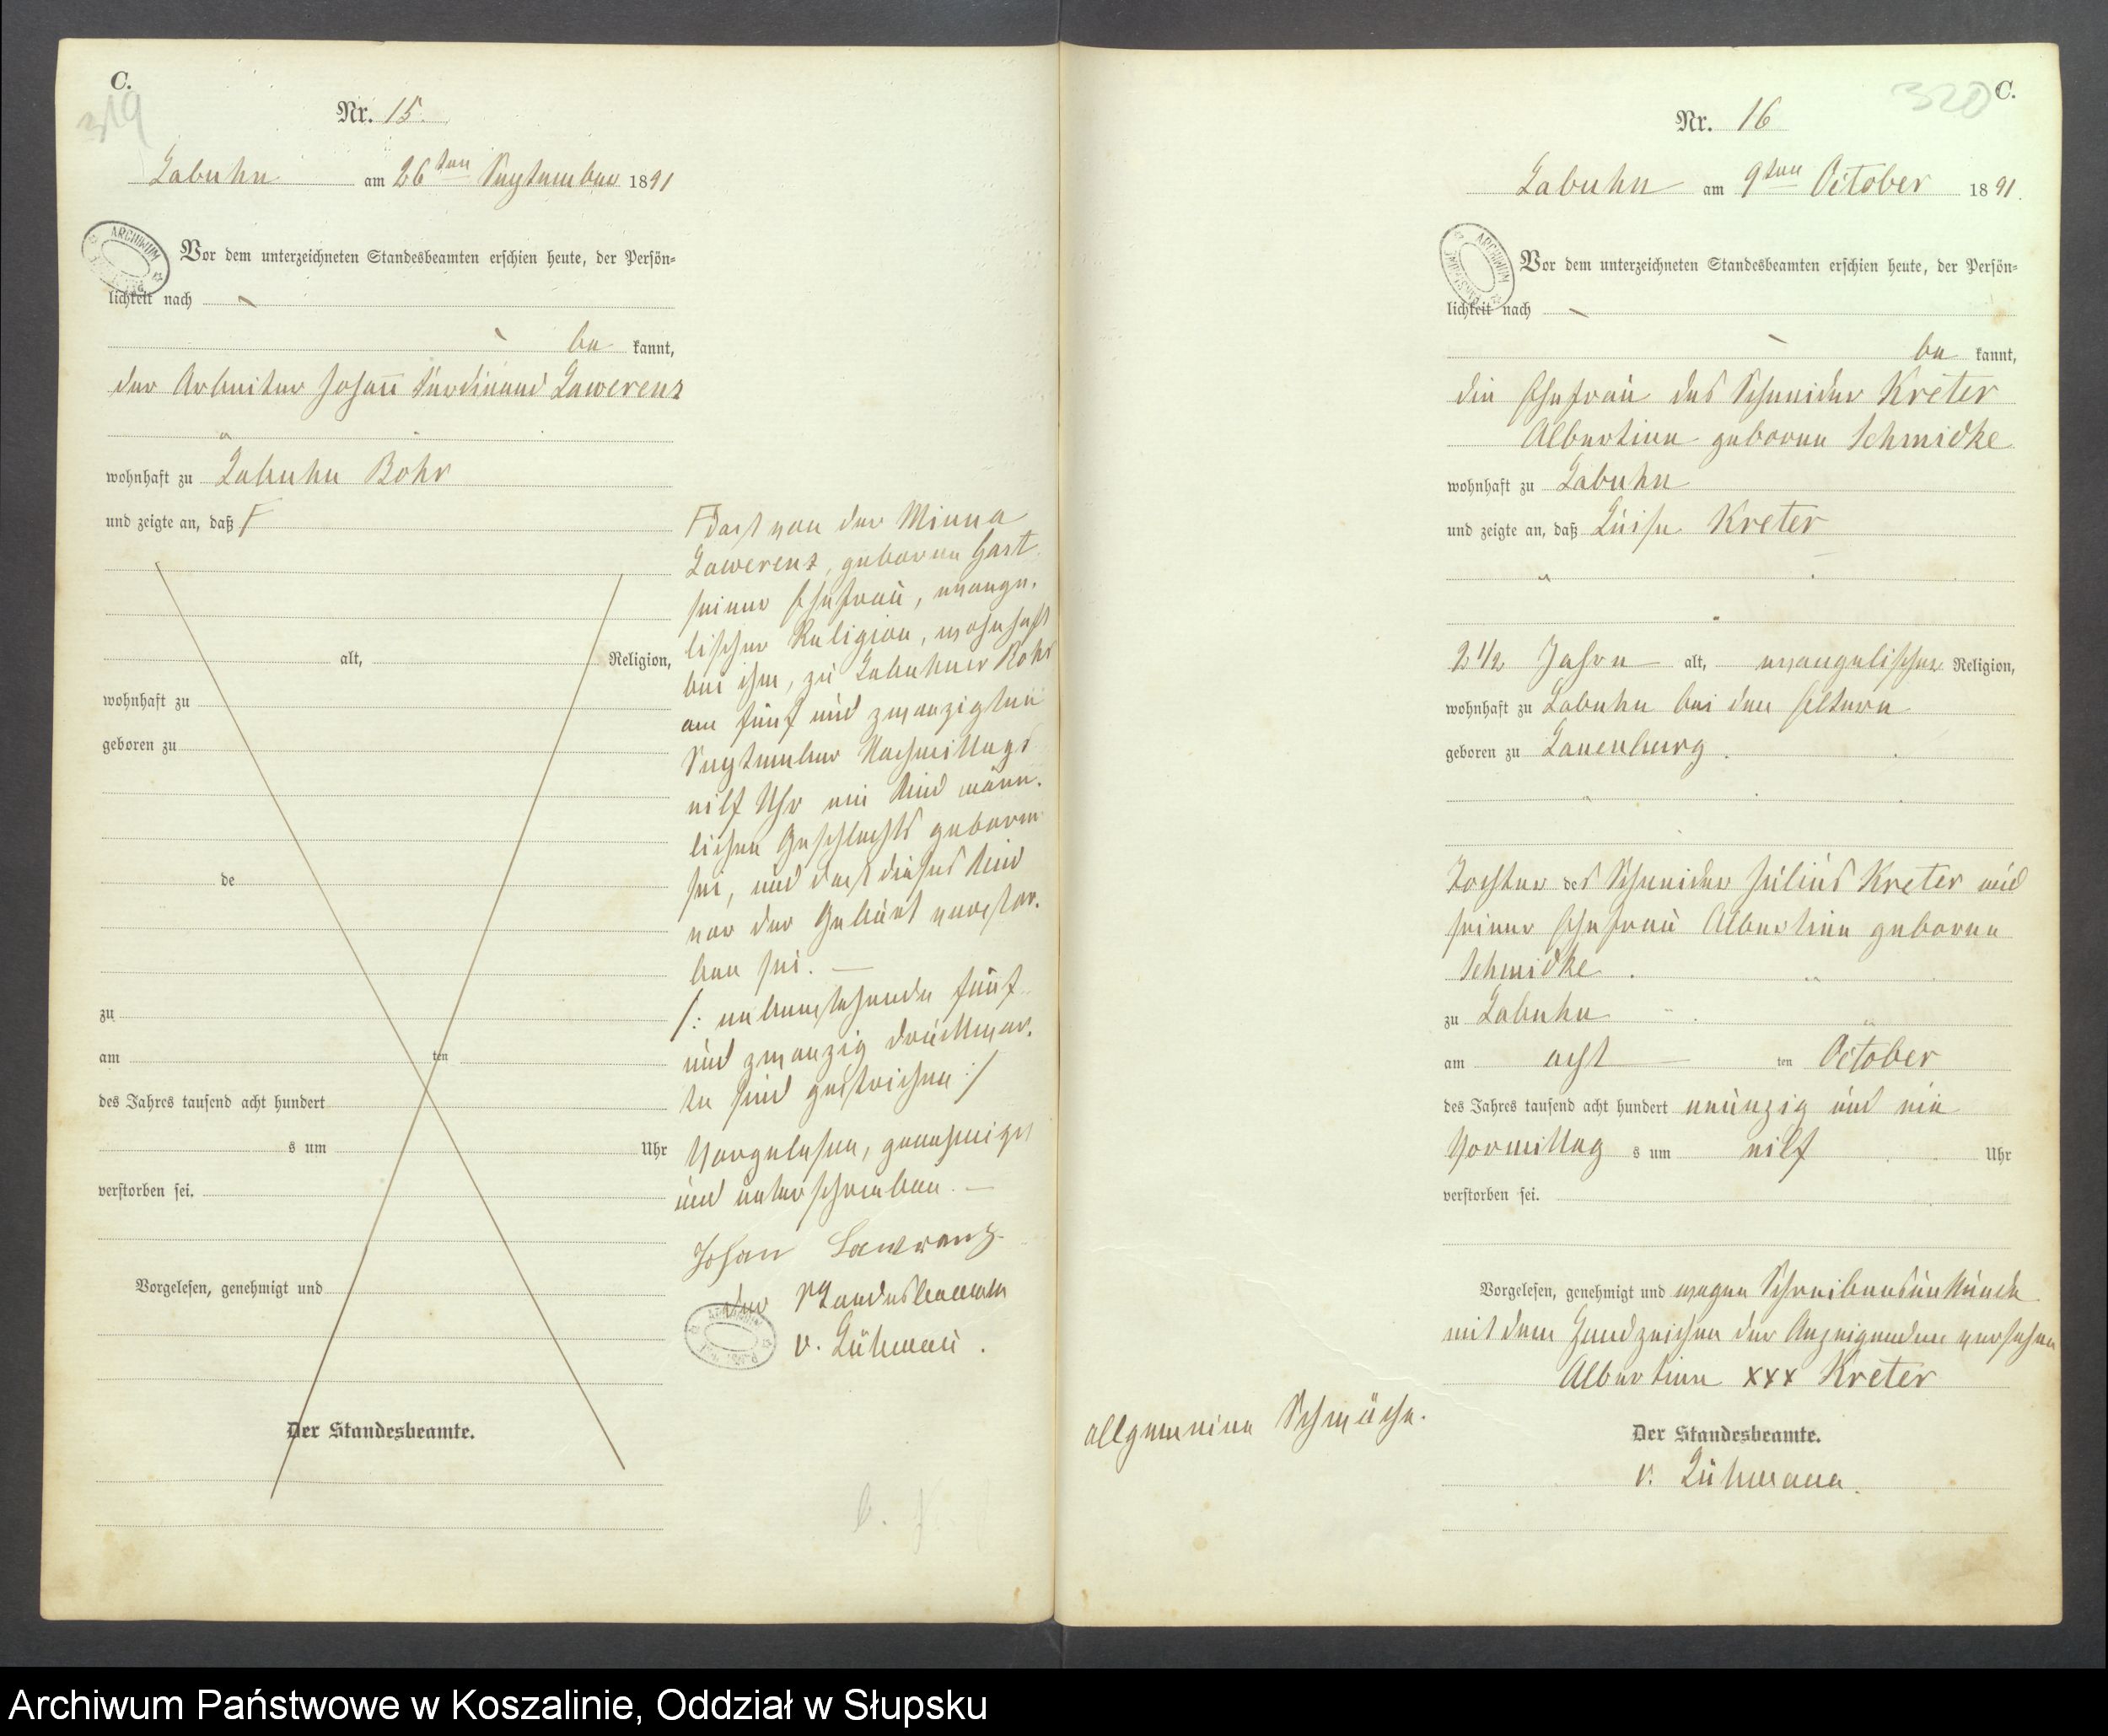 C.
319
Nr. 15.
Labuhn am 26ten September 1891
ARCHIWUM
Vor dem unterzeichneten Standesbeamten erschien heute, der Persön=
lichkeit nach
be kannt,
der Arbeiter Johañ Ferdinand Lawerenz
wohnhaft zu Labuhn Bohr
und zeigte an, daß F
alt, Religion,
wohnhaft zu
geboren zu
de
zu
am ten
des Jahres tausend acht hundert
s um Uhr
verstorben sei.
Vorgelesen, genehmigt und
Der Standesbeamte.
F dass von der Minna
Lawerenz, geborene Gast
seiner Ehefrau, evange-
lischer Religion, wohnhaft
bei ihm, zu Labuhner Bohr
am fünf und zwanzigsten
September Nachmittags
eilf Uhr ein Kind männ-
lichen Geschlechts geboren
sei, und dass dieses Kind
vor der Geburt verstor-
ben sei. —
/: nebenstehende fünf
und zwanzig Druckwor-
te sind gestrichen :/
Vorgelesen, genehmigt
und unterschrieben. —
Johan Lawrenz
der Standesbeamte
v. Lühmañ.
320
C.
Nr. 16
Labuhn am 9ten October 1891.
ARCHIWUM
Vor dem unterzeichneten Standesbeamten erschien heute, der Persön=
lichkeit nach
be kannt,
die Ehefrau des Schneider Kreter
Albertine geborene Schmidke
wohnhaft zu Labuhn
und zeigte an, daß Luise Kreter
2 1/2 Jahre alt, evangelischer Religion,
wohnhaft zu Labuhn bei den Eltern
geboren zu Lauenburg.
Tochter des Schneider Julius Kreter und
seiner Ehefrau Albertine geborene
Schmidke.
zu Labuhn
am acht ten October
des Jahres tausend acht hundert neunzig und ein
Vormittag s um eilf Uhr
verstorben sei.
Vorgelesen, genehmigt und wegen Schreibensunkunde
mit dem Handzeichen der Anzeigenden versehen
Albertine xxx Kreter
Der Standesbeamte.
v. Lühmann.
allgemeine Schwäche.
Archiwum Państwowe w Koszalinie, Oddział w Słupsku